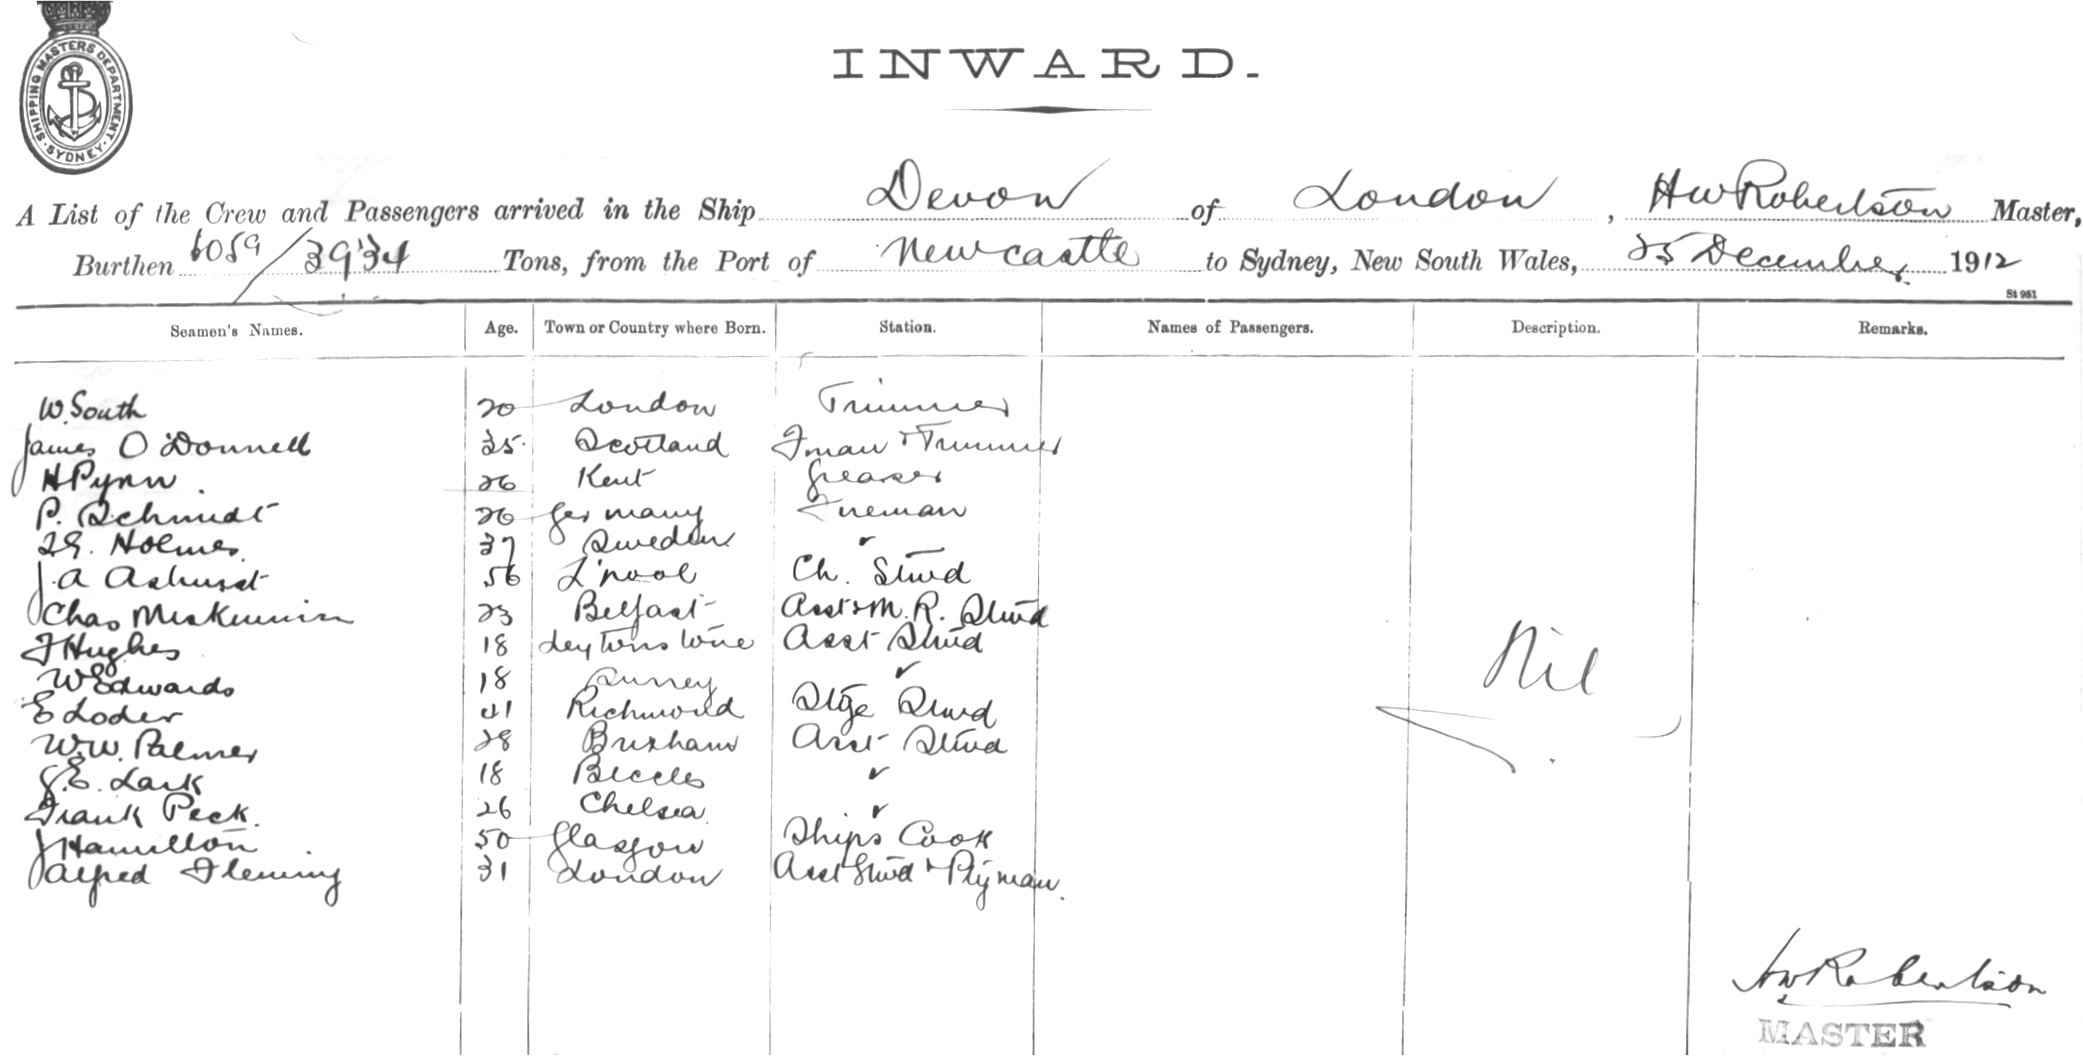 SHIPPING MASTERS DEPARTMENT
SYDNEY
INWARD.
A List of the Crew and Passengers arrived in the Ship Devon of London, HW Robertson Master,
Burthen 6059/3934 Tons, from the Port of Newcastle to Sydney, New South Wales, 25 December 1912
St 961
Seamen's Names. Age. Town or Country where Born. Station. Names of Passengers. Description. Remarks.
W. South 20 London Trimmer
James O'Donnell 35 Scotland Fman & Trimmer
H Pynn 26 Kent Greaser
P. Schmidt 26 Germany Fireman
Holmes 37 Sweden ✓
J. A Ashurst 56 L'pool Ch. Stwd
Chas 23 Belfast Asst & M. R. Stwd
F Hughes 18 Leytonstone Asst Stwd
W Edwards 18 Surrey ✓
E Loder 41 Richmond Stge Stwd
W. W. Palmer 28 Brixham Asst Stwd
E. Lark 18 Beccles ✓
Frank Peck. 26 Chelsea ✓
J Hamilton 50 Glasgow Ships Cook
Alfred Fleming 31 London Asst Stwd &
Nil
HW Robertson
MASTER